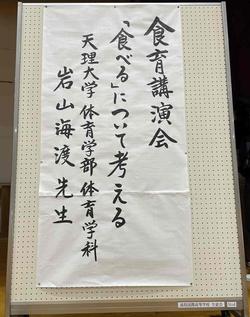 食育講演会
「食べる」について考える
天理大学 体育学部 体育学科
岩山海渡 先生